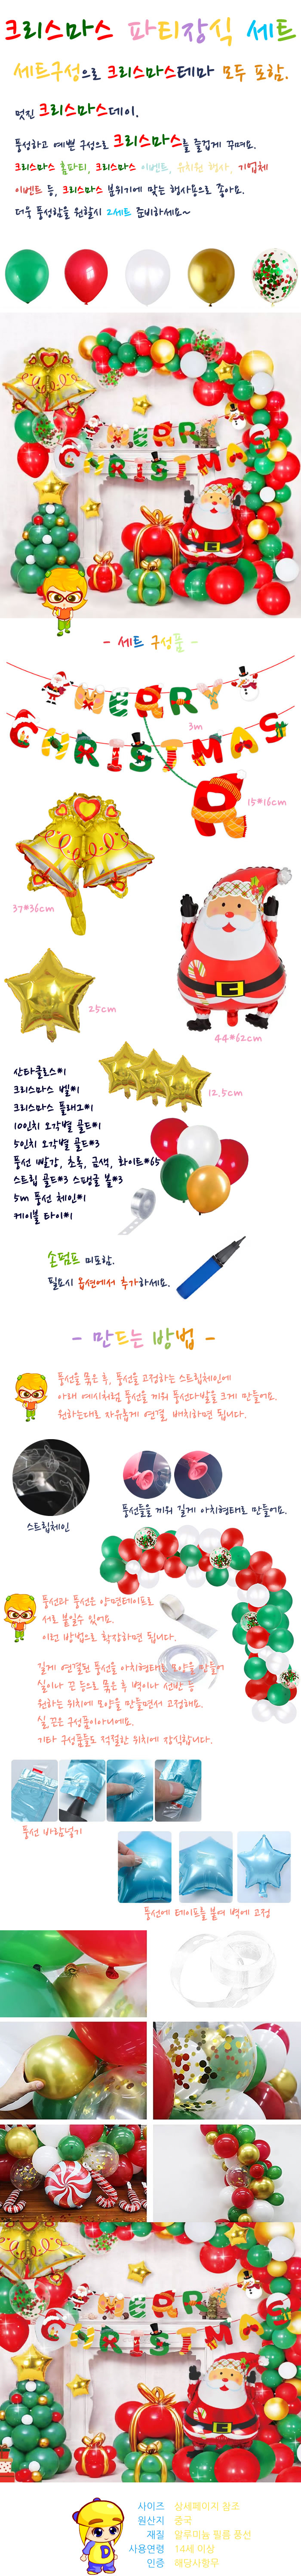 크리스마스 파티장식 세트
세트구성으로 크리스마스테마 모두 포함.
멋진 크리스마스데이.
풍성하고 예쁜 구성으로 크리스마스를 즐겁게 꾸며요.
크리스마스 홈파티, 크리스마스 이벤트, 유치원 행사, 기업체
이벤트 등, 크리스마스 분위기에 맞는 행사용으로 좋아요.
더욱 풍성함을 원할시 2세트 준비하세요~
MERRY
CHRISTMAS
- 세트 구성품 -
MERRY
3m
CHRISTMAS
R
15*16cm
37*36cm
25cm
44*62cm
12.5cm
산타클로스*1
크리스마스 벨*1
크리스마스 플래그*1
10인치 오각별 골드*1
5인치 오각별 골드*3
풍선 빨강, 초록, 금색, 화이트*65
스트립 골드*3 스팽글 볼*3
5m 풍선 체인*1
케이블 타이*1
손펌프 미포함.
필요시 옵션에서 추가하세요.
- 만드는 방법 -
풍선을 묶은 후, 풍선을 고정하는 스트립체인에
아래 예시처럼 풍선을 끼워 풍선다발을 크게 만들어요.
원하는대로 자유롭게 연결, 배치하면 됩니다.
스트립체인
풍선들을 끼워 길게 아치형태로 만들어요.
풍선과 풍선은 양면테이프로
서로 붙일수 있어요.
이런 방법으로 확장하면 됩니다.
길게 연결된 풍선을 아치형태로 모양을 만들어
실이나 끈 등으로 묶은 후 벽이나 선반 등
원하는 위치에 모양을 만들면서 고정해요.
실,끈은 구성품이아니에요.
기타 구성품들도 적절한 위치에 장식합니다.
풍선 바람넣기
풍선에 테이프를 붙여 벽에 고정
MERRY
CHRISTMAS
D
사이즈 상세페이지 참조
원산지 중국
재질 알루미늄 필름 풍선
사용연령 14세 이상
인증 해당사항무